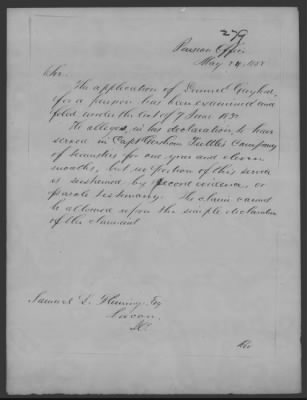 279
Pension Office
May 24, 1855
Sir.
The application of Lemuel Gaylord,
for a pension has been examined and
filed under the act of 7 June 1832
He alleges, in his declaration, to have
served in Capt Gersham Tuttles Company
of for one year and eleven
months, but no portion of this service
is sustained by record evidence, or
parole testimony. The claim cannot
be allowed upon the simple declaration
of the claimant
Samuel L. Fleming Esq
Lacon
Ill.